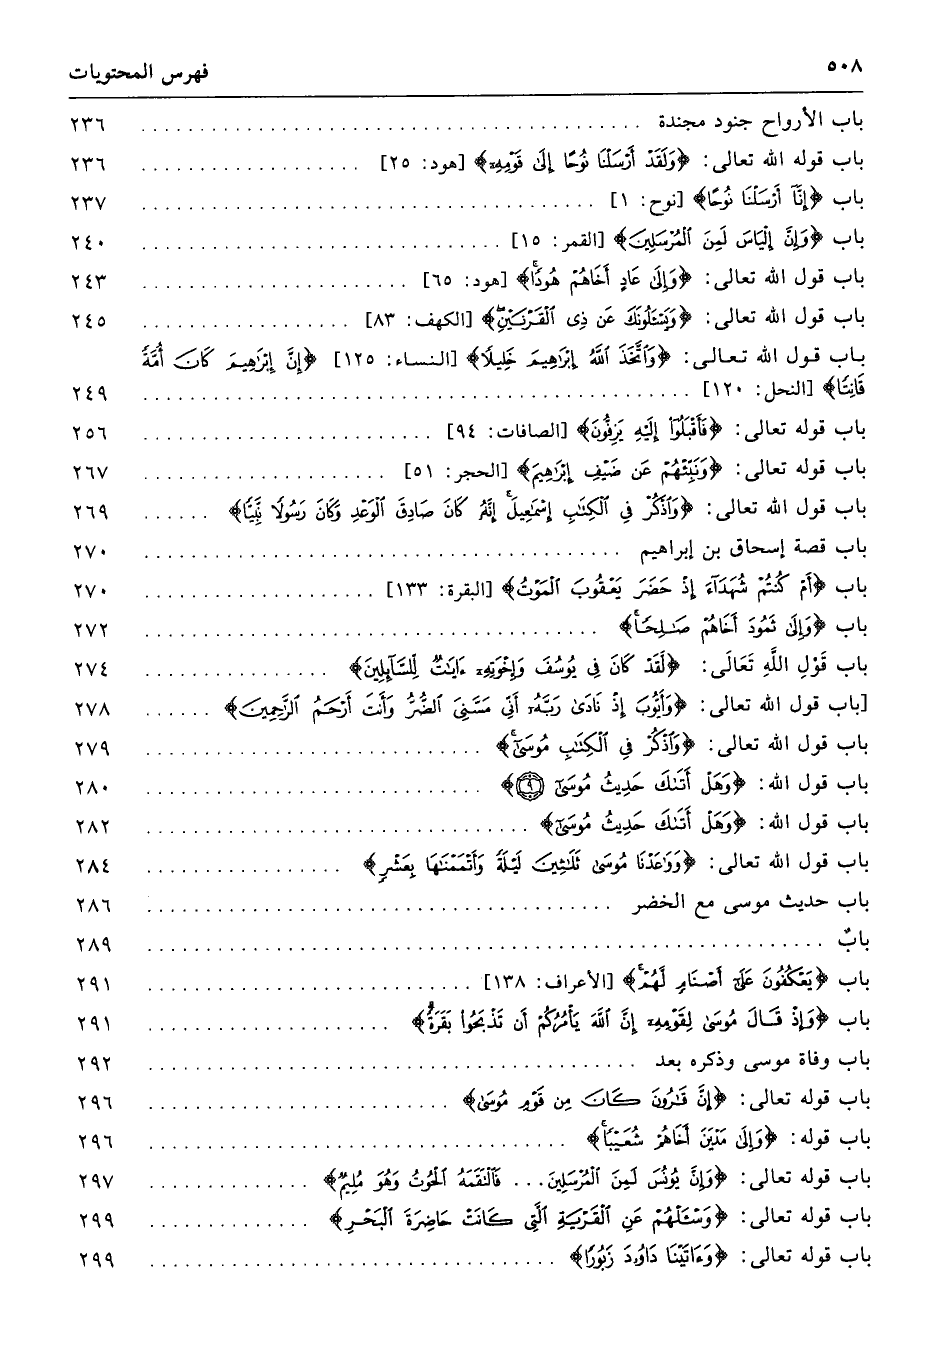 ٥٠٨ فهرس المحتويات
باب الأرواح جنود مجندة ........ ٢٣٦
باب قوله الله تعالى: ﴿وَلَقَدْ أَرْسَلْنَا نُوحًا إِلَىٰ قَوْمِهِۦ﴾ [هود: ٢٥] ........ ٢٣٦
باب ﴿إِنَّآ أَرْسَلْنَا نُوحًا﴾ [نوح: ١] ........ ٢٣٧
باب ﴿وَإِنَّ إِلْيَاسَ لَمِنَ ٱلْمُرْسَلِينَ﴾ [القمر: ١٥] ........ ٢٤٠
باب قول الله تعالى: ﴿وَإِلَىٰ عَادٍ أَخَاهُمْ هُودًا ۚ﴾ [هود: ٦٥] ........ ٢٤٣
باب قول الله تعالى: ﴿وَيَسْـَٔلُونَكَ عَن ذِى ٱلْقَرْنَيْنِ ۖ﴾ [الكهف: ٨٣] ........ ٢٤٥
باب قول الله تعالى: ﴿وَٱتَّخَذَ ٱللَّهُ إِبْرَٰهِيمَ خَلِيلًا﴾ [النساء: ١٢٥] ﴿إِنَّ إِبْرَٰهِيمَ كَانَ أُمَّةً
قَانِتًا﴾ [النحل: ١٢٠] ........ ٢٤٩
باب قوله تعالى: ﴿فَأَقْبَلُوٓا۟ إِلَيْهِ يَزِفُّونَ﴾ [الصافات: ٩٤] ........ ٢٥٦
باب قوله تعالى: ﴿وَنَبِّئْهُمْ عَن ضَيْفِ إِبْرَٰهِيمَ﴾ [الحجر: ٥١] ........ ٢٦٧
باب قول الله تعالى: ﴿وَٱذْكُرْ فِى ٱلْكِتَٰبِ إِسْمَٰعِيلَ ۚ إِنَّهُۥ كَانَ صَادِقَ ٱلْوَعْدِ وَكَانَ رَسُولًا نَّبِيًّا﴾ ...... ٢٦٩
باب قصة إسحاق بن إبراهيم ........ ٢٧٠
باب ﴿أَمْ كُنتُمْ شُهَدَآءَ إِذْ حَضَرَ يَعْقُوبَ ٱلْمَوْتُ﴾ [البقرة: ١٣٣] ........ ٢٧٠
باب ﴿وَإِلَىٰ ثَمُودَ أَخَاهُمْ صَٰلِحًا ۚ﴾ ........ ٢٧٢
باب قَوْلِ اللَّهِ تَعَالَى: ﴿لَقَدْ كَانَ فِى يُوسُفَ وَإِخْوَتِهِۦٓ ءَايَٰتٌ لِّلسَّآئِلِينَ﴾ ........ ٢٧٤
[باب قول الله تعالى: ﴿وَأَيُّوبَ إِذْ نَادَىٰ رَبَّهُۥٓ أَنِّى مَسَّنِىَ ٱلضُّرُّ وَأَنتَ أَرْحَمُ ٱلرَّٰحِمِينَ﴾ ...... ٢٧٨
باب قول الله تعالى: ﴿وَٱذْكُرْ فِى ٱلْكِتَٰبِ مُوسَىٰٓ ۚ﴾ ........ ٢٧٩
باب قول الله: ﴿وَهَلْ أَتَىٰكَ حَدِيثُ مُوسَىٰٓ ۝٩﴾ ........ ٢٨٠
باب قول الله: ﴿وَهَلْ أَتَىٰكَ حَدِيثُ مُوسَىٰٓ﴾ ........ ٢٨٢
باب قول الله تعالى: ﴿وَوَٰعَدْنَا مُوسَىٰ ثَلَٰثِينَ لَيْلَةً وَأَتْمَمْنَٰهَا بِعَشْرٍ﴾ ........ ٢٨٤
باب حديث موسى مع الخضر ........ ٢٨٦
بابٌ ........ ٢٨٩
باب ﴿يَعْكُفُونَ عَلَىٰٓ أَصْنَامٍ لَّهُمْ ۚ﴾ [الأعراف: ١٣٨] ........ ٢٩١
باب ﴿وَإِذْ قَالَ مُوسَىٰ لِقَوْمِهِۦٓ إِنَّ ٱللَّهَ يَأْمُرُكُمْ أَن تَذْبَحُوا۟ بَقَرَةً ۖ﴾ ........ ٢٩١
باب وفاة موسى وذكره بعد ........ ٢٩٢
باب قوله تعالى: ﴿إِنَّ قَٰرُونَ كَانَ مِن قَوْمِ مُوسَىٰ﴾ ........ ٢٩٦
باب قوله: ﴿وَإِلَىٰ مَدْيَنَ أَخَاهُمْ شُعَيْبًا ۚ﴾ ........ ٢٩٦
باب قوله تعالى: ﴿وَإِنَّ يُونُسَ لَمِنَ ٱلْمُرْسَلِينَ... فَٱلْتَقَمَهُ ٱلْحُوتُ وَهُوَ مُلِيمٌ﴾ ........ ٢٩٧
باب قوله تعالى: ﴿وَسْـَٔلْهُمْ عَنِ ٱلْقَرْيَةِ ٱلَّتِى كَانَتْ حَاضِرَةَ ٱلْبَحْرِ﴾ ........ ٢٩٩
باب قوله تعالى: ﴿وَءَاتَيْنَا دَاوُۥدَ زَبُورًا﴾ ........ ٢٩٩